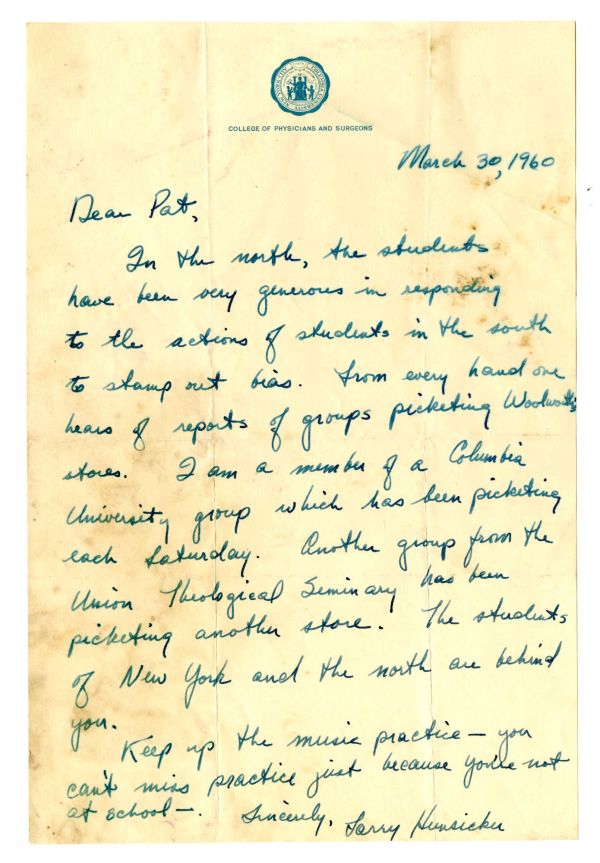 COLLEGE OF PHYSICIANS AND SURGEONS
March 30, 1960
Dear Pat,
In the north, the students
have been very generous in responding
to the actions of students in the south
to stamp out bias. From every hand one
hears of reports of groups picketing Woolworth's
stores. I am a member of a Columbia
University group which has been picketing
each Saturday. Another group from the
Union Theological Seminary has been
picketing another store. The students
of New York and the north are behind
you.
Keep up the music practice — you
can't miss practice just because you're not
at school —. Sincerely, Larry Hunsicker